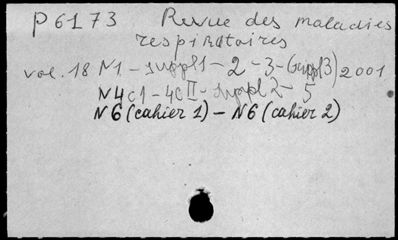 P 6173 Revue des maladies
respiratoires
vol. 18 N1 - suppl1 - 2 - 3 - (suppl3) 2001
N4c1 - 4cII - suppl 2 - 5
N6 (cahier 1) - N6 (cahier 2)